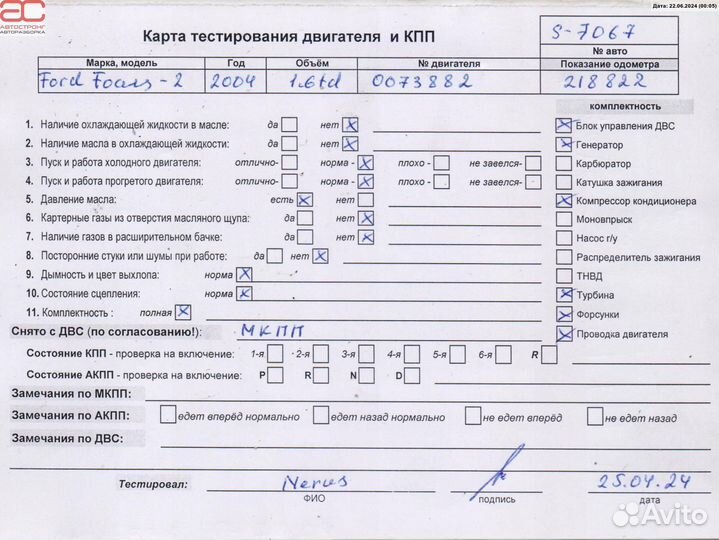 Дата: 22.06.2024 (00:05)
АС
АВТОСТРОНГ
АВТОРАЗБОРКА
Карта тестирования двигателя и КПП
S-7067
№ авто
Марка, модель Год Объём № двигателя Показание одометра
Ford Focus-2 2004 1.6td 0073882 218822
комплектность
1. Наличие охлаждающей жидкости в масле: да нет X
X Блок управления ДВС
2. Наличие масла в охлаждающей жидкости: да нет X
X Генератор
3. Пуск и работа холодного двигателя: отлично- норма - X плохо - не завелся-
Карбюратор
4. Пуск и работа прогретого двигателя: отлично- норма - X плохо - не завелся-
Катушка зажигания
5. Давление масла: есть X нет
X Компрессор кондиционера
6. Картерные газы из отверстия масляного щупа: да нет X
Моновпрыск
7. Наличие газов в расширительном бачке: да нет X
Насос г/у
8. Посторонние стуки или шумы при работе: да нет X
Распределитель зажигания
9. Дымность и цвет выхлопа: норма X
ТНВД
10. Состояние сцепления: норма X
X Турбина
11. Комплектность : полная X
X Форсунки
Снято с ДВС (по согласованию!): МКПП
X Проводка двигателя
Состояние КПП - проверка на включение: 1-я 2-я 3-я 4-я 5-я 6-я R
Состояние АКПП - проверка на включение: P R N D
Замечания по МКПП:
Замечания по АКПП: едет вперёд нормально едет назад нормально не едет вперёд не едет назад
Замечания по ДВС:
Тестировал: 25.04.24
ФИО подпись дата
Avito